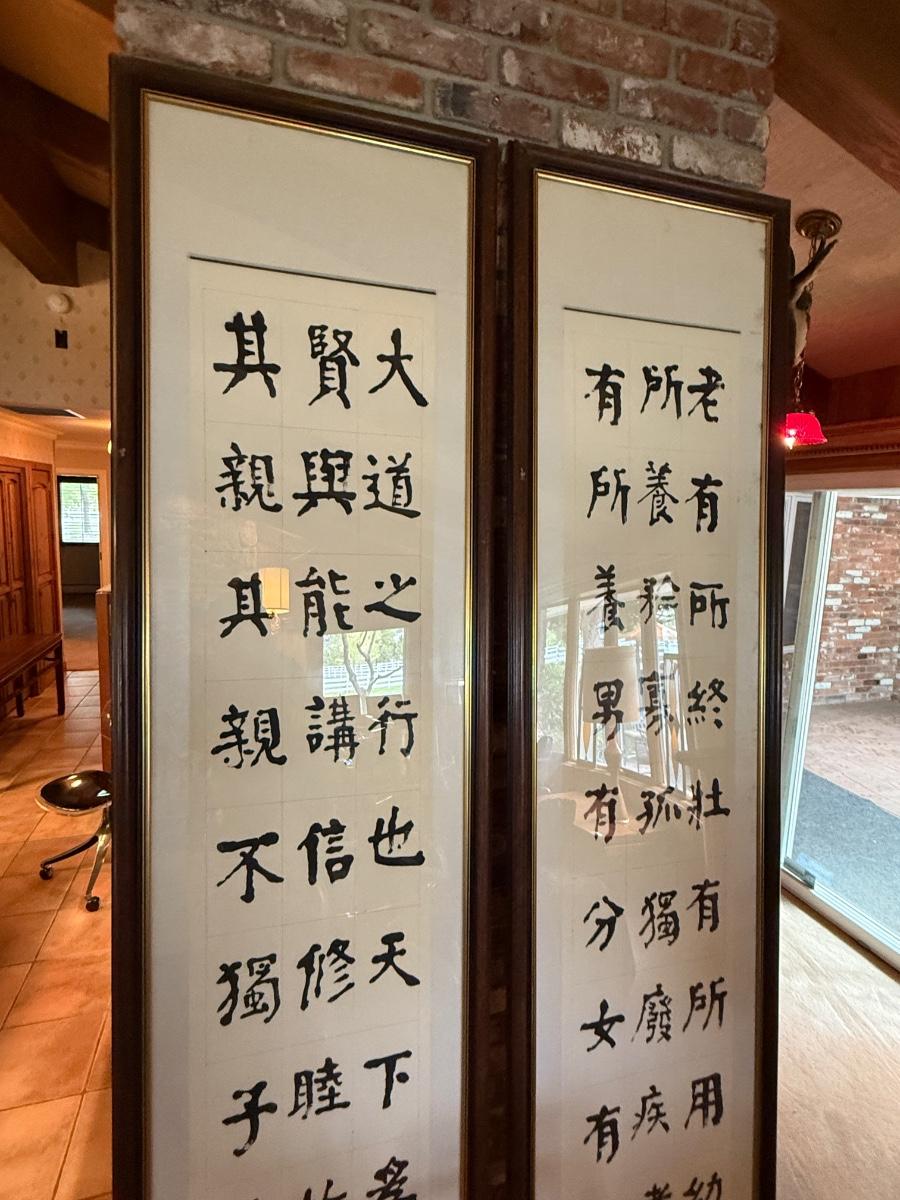 大道之行也天下爲
賢與能講信修睦
其親其親不獨子
老有所終壯有所用幼
所養矜寡孤獨廢疾者
有所養男有分女有